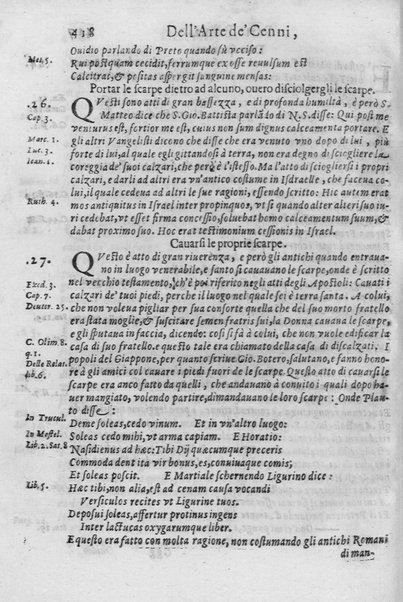 418 Dell'Arte de' Cenni,
Ouidio parlando di Preto quando fù vcciso:
Met. 5. Rui postquam cecidit, ferrumque ex osse reuulsum est
Calcitrat, & positas aspergit sanguine mensas:
Portar le scarpe dietro ad alcuno, ouero disciolgergli le scarpe.
.26. QVesti sono atti di gran bassezza, e di profonda humiltà, e però S.
Cap. 3. Matteo dice che S. Gio. Battista parlādo di N.S. disse: Qui post me
venturus est, fortior me est, cuius non sum dignus calceamenta portare. E
Marc. 1. gli altri Vangelisti dicono che disse che era venuto vno dopo di lui, più
Luc. 3. forte di lui, al quale egli gittandosi à terra, non era degno di sciogliere la
Ioan. 1. coreggia de' suoi calzari, che però è l'istesso. Ma l'atto di sciogliersi i propri
calzari, e darli ad altri era vn'antico costume in Isdraelle, che faceua co-
lui, il quale cedeua ad altri le sue ragioni, essendo scritto: Hic autem erat
Ruth. 4. mos antiquitus in Israel inter propinquos, vt si quando alter alteri suo iu-
ri cedebat, vt esset firma concessio, soluebat homo calceamentum suum, &
dabat proximo suo. Hoc erat testimonium cessionis in Israel.
Cauarsi le proprie scarpe.
.27. QVesto è atto di gran riuerenza, e però gli antichi quando entraua-
no in luogo venerabile, e santo si cauauano le scarpe, onde è scritto
Exod. 3. nel vecchio testamento, ch'è poi riferito negli atti degli Apostoli: Cauati i
Cap. 7. calzari de' tuoi piedi, perche il luogo nel quale sei è terra santa. A colui,
Deuter. 25. che non voleua pigliar per sua conforte quella che del suo morto fratello
era stata moglie, & suscitare semen fratris sui, la Donna cauaua le scarpe,
egli sputaua in faccia, dicendo: così si fà à colui, che non vuole edificar la
C. Olim 8. casa di suo fratello. e questo tale era chiamato della casa di discalzati. I
q. 1. popoli del Giappone, per quanto scriue Gio. Botero, salutano, e fanno hono-
Delle Relat. re à gli amici col cauare i piedi fuori de le scarpe. Questo atto di cauarsi le
lib. 6. scarpe era anco fatto da quelli, che andauano à conuito i quali dopo ha-
uer mangiato, volendo partire, dimandauano le loro scarpe: Onde Plau-
to disse:
In Trucul. Deme soleas, cedo vinum. Et in vn'altro luogo:
In Mostel. Soleas cedo mihi, vt arma capiam. E Horatio:
Lib. 2. Sat. 8 Nasidienus ad hæc: Tibi Dij quæcumque preceris
Commoda dent ita vir bonus, es, conuiuaque comis;
Et soleas poscit. E Martiale schernendo Ligurino dice:
Lib. 5. Hæc tibi, non alia, est ad cenam causa vocandi
Versiculos recites vt Ligurine tuos.
Deposui soleas, affertur protinus ingens
Inter lactucas oxygarumque liber.
E questo era fatto con molta ragione, non costumando gli antichi Romani
di man-